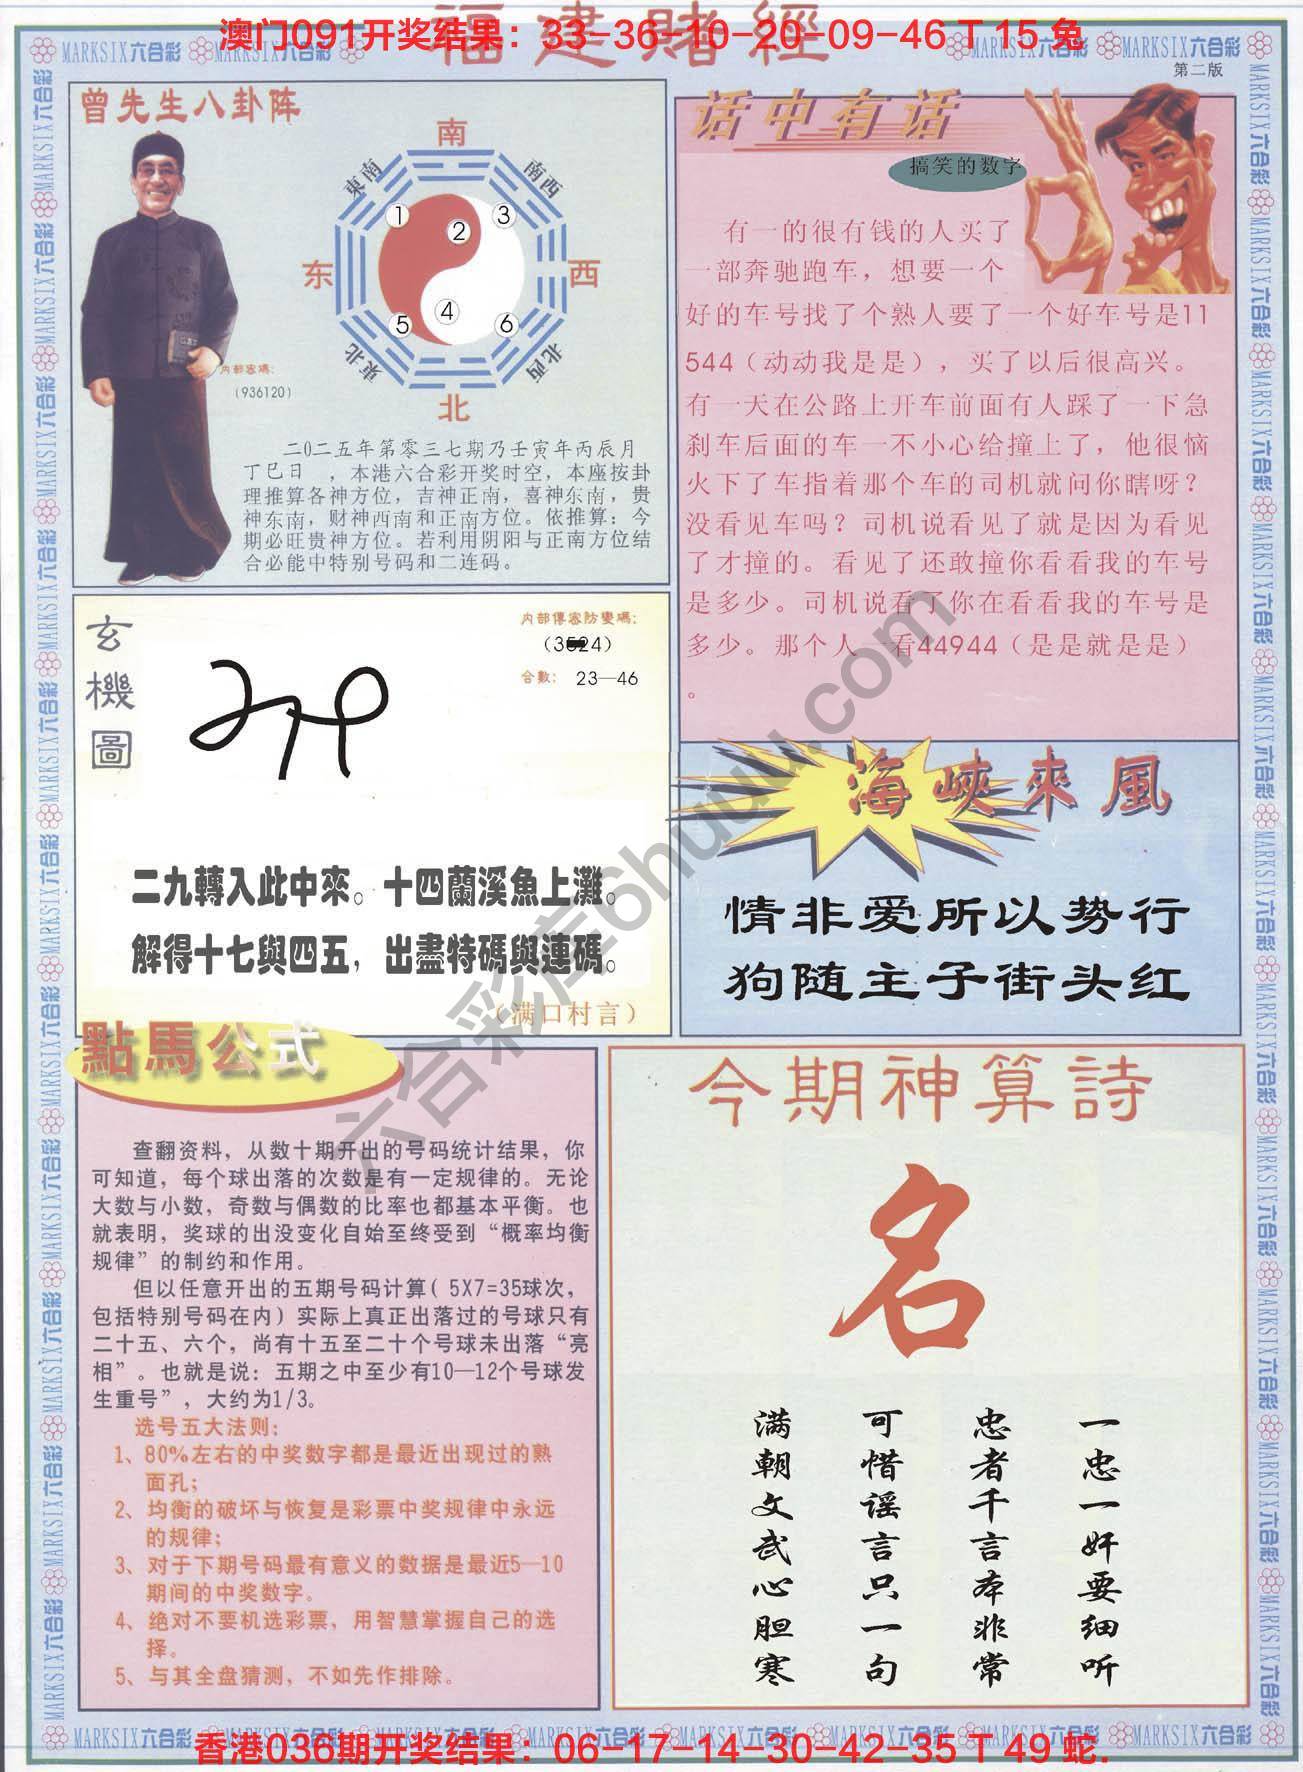 福建賭經
澳门091开奖结果：33-36-10-20-09-46 T 15 兔
MARKSIX六合彩
第二版
曾先生八卦阵
南
東南
南西
1
2
3
东
西
4
5
6
東北
北西
北
内部密碼：
（936120）
二0二五年第零三七期乃壬寅年丙辰月
丁巳日　，本港六合彩开奖时空，本座按卦
理推算各神方位，吉神正南，喜神东南，贵
神东南，财神西南和正南方位。依推算：今
期必旺贵神方位。若利用阴阳与正南方位结
合必能中特别号码和二连码。
话中有话
搞笑的数字
有一的很有钱的人买了
一部奔驰跑车，想要一个
好的车号找了个熟人要了一个好车号是11
544（动动我是是），买了以后很高兴。
有一天在公路上开车前面有人踩了一下急
刹车后面的车一不小心给撞上了，他很恼
火下了车指着那个车的司机就问你瞎呀？
没看见车吗？司机说看见了就是因为看见
了才撞的。看见了还敢撞你看看我的车号
是多少。司机说看了你在看看我的车号是
多少。那个人一看44944（是是就是是）
。
玄機圖
内部傳密防變碼：
合數： 23—46
二九轉入此中來。十四蘭溪魚上灘。
解得十七與四五，出盡特碼與連碼。
（满口村言）
海峽來風
情非爱所以势行
狗随主子街头红
點馬公式
查翻资料，从数十期开出的号码统计结果，你
可知道，每个球出落的次数是有一定规律的。无论
大数与小数，奇数与偶数的比率也都基本平衡。也
就表明，奖球的出没变化自始至终受到“概率均衡
规律”的制约和作用。
但以任意开出的五期号码计算（5X7=35球次，
包括特别号码在内）实际上真正出落过的号球只有
二十五、六个，尚有十五至二十个号球未出落“亮
相”。也就是说：五期之中至少有10—12个号球发
生重号”，大约为1/3。
选号五大法则：
1、80%左右的中奖数字都是最近出现过的熟
面孔；
2、均衡的破坏与恢复是彩票中奖规律中永远
的规律；
3、对于下期号码最有意义的数据是最近5—10
期间的中奖数字。
4、绝对不要机选彩票，用智慧掌握自己的选
择。
5、与其全盘猜测，不如先作排除。
今期神算詩
名
一忠一奸要细听
忠者千言本非常
可惜谣言只一句
满朝文武心胆寒
六合彩库6huuu.com
香港036期开奖结果：06-17-14-30-42-35 T 49 蛇.